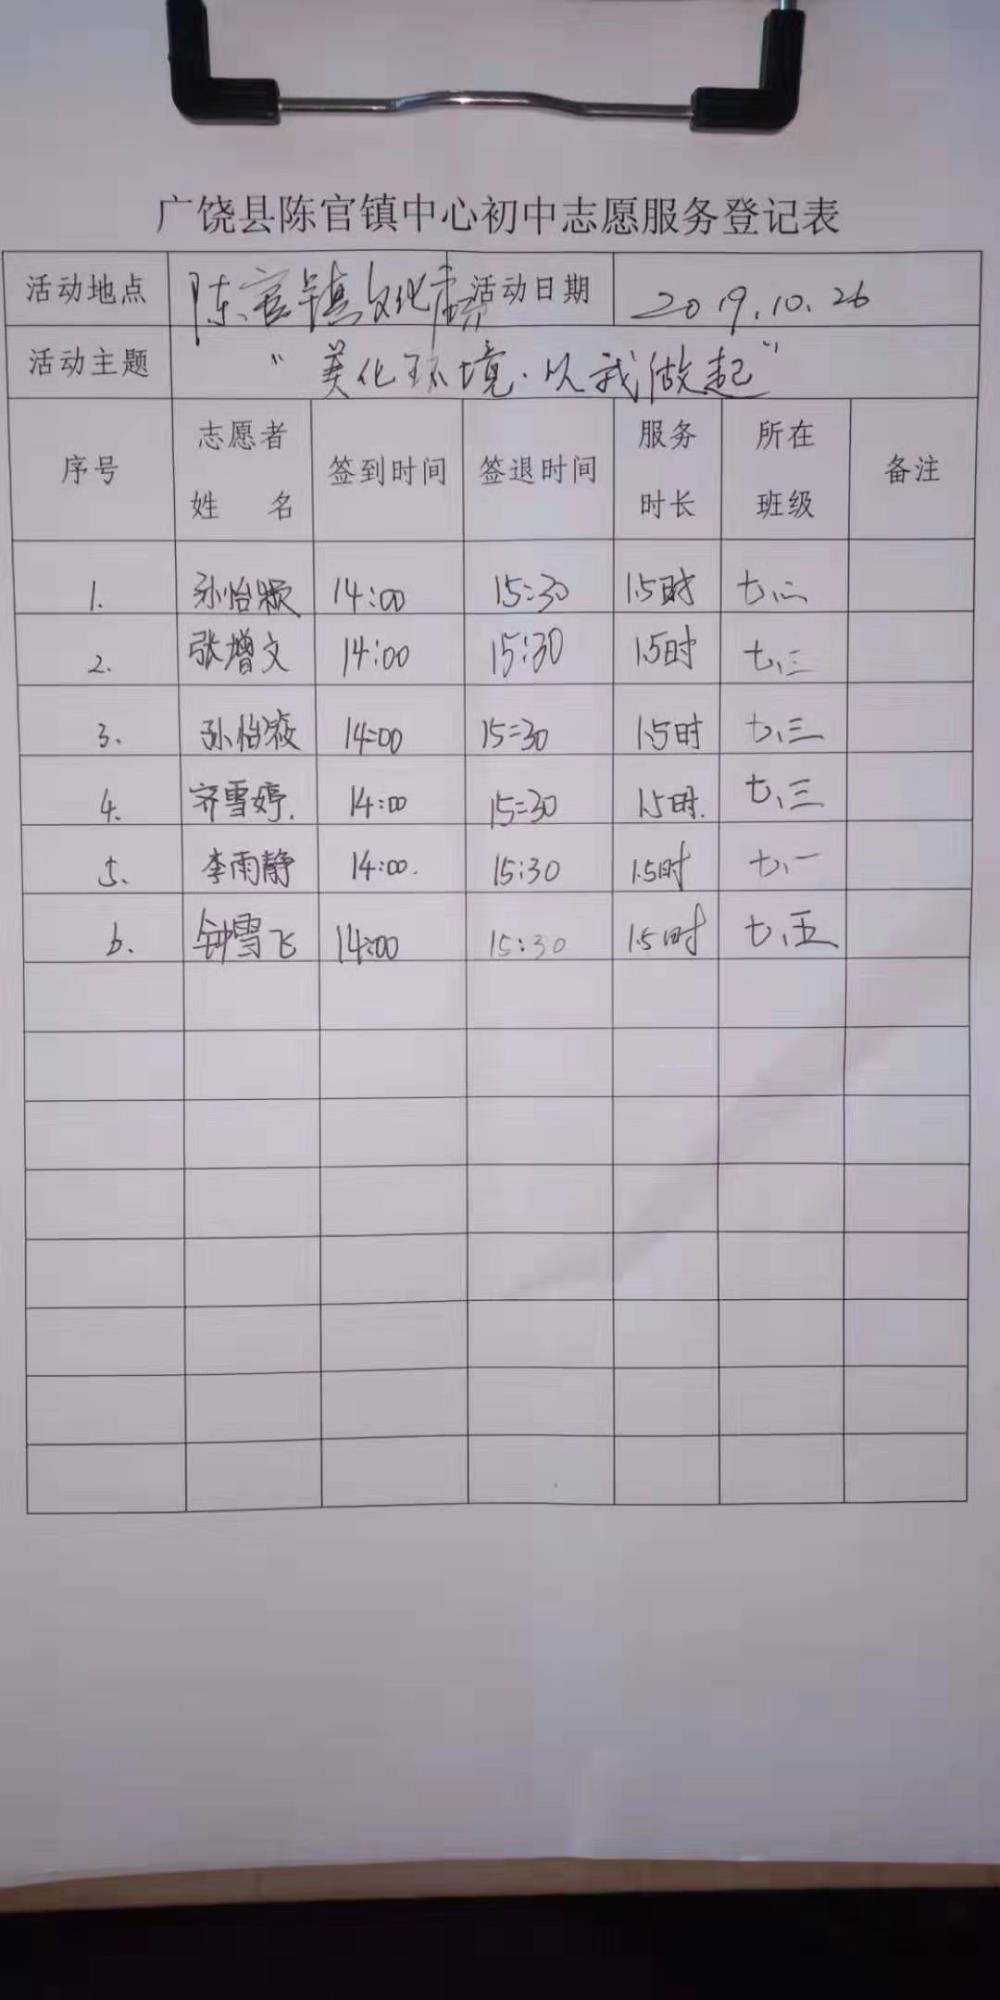 广饶县陈官镇中心初中志愿服务登记表
活动地点 陈官镇文化 活动日期 2019.10.26
活动主题 “美化环境.从我做起”
序号 志愿者姓名 签到时间 签退时间 服务时长 所在班级 备注
1. 孙怡颖 14:00 15:30 1.5时 七、二
2. 张增文 14:00 15:30 1.5时 七、三
3. 孙怡 14:00 15:30 1.5时 七、三
4. 齐雪婷. 14:00 15:30 1.5时. 七、三
5. 李雨静 14:00. 15:30 1.5时 七、一
6. 钟雪飞 14:00 15:30 1.5时 七、五